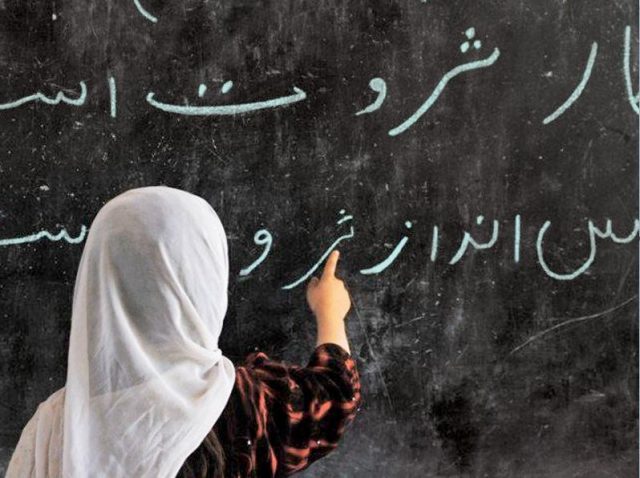 ار ثروت اس
س انداز ثرو س